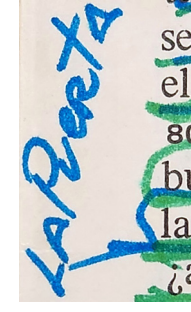 LA PUERTA
se
el
80
bu
la
¿a